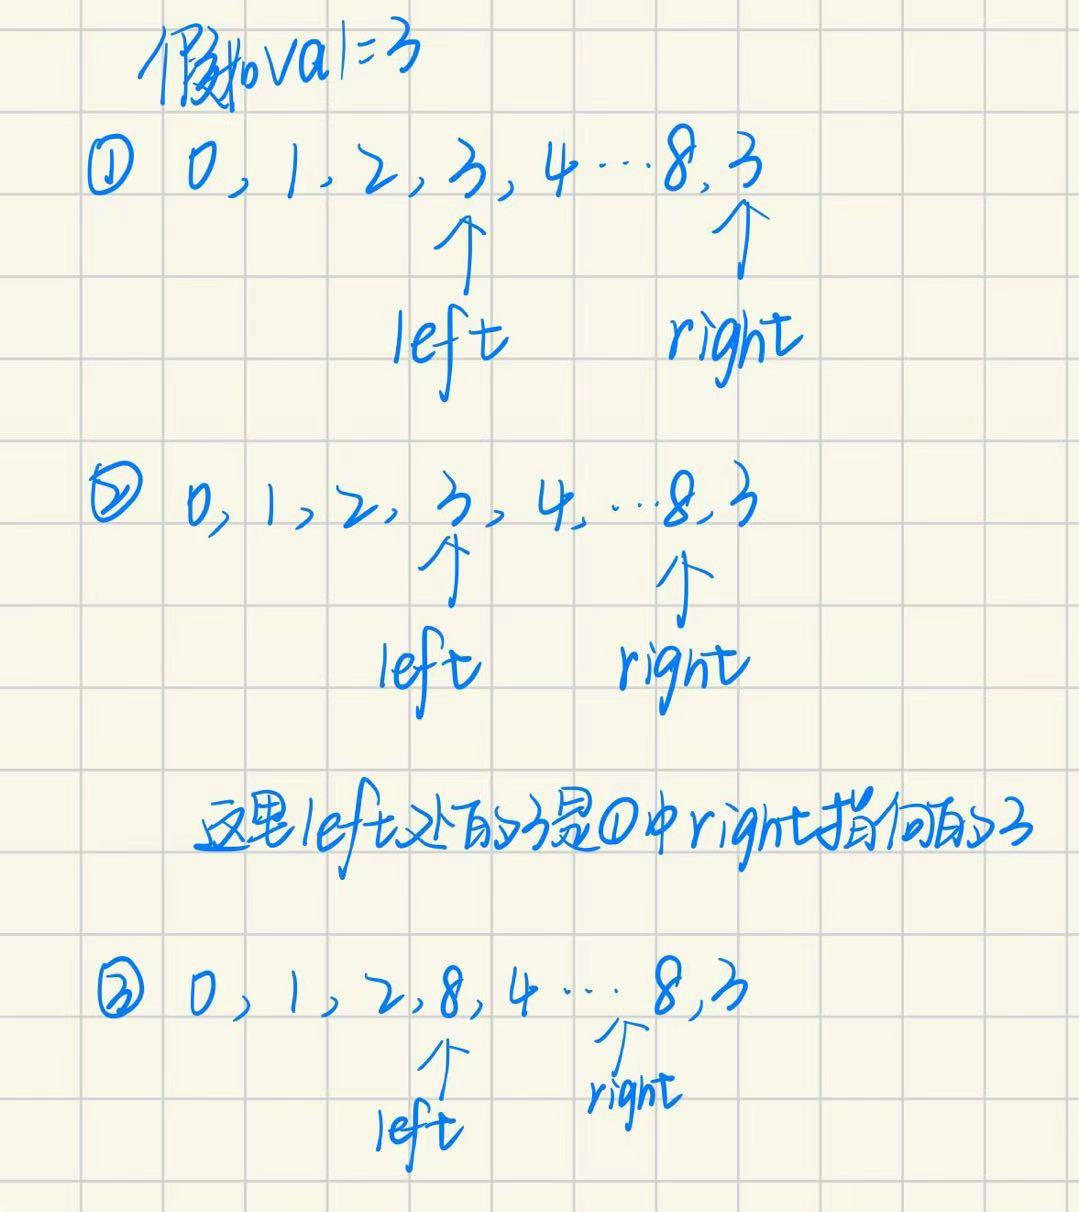 假如val=3
① 0, 1, 2, 3, 4…8, 3
left right
② 0, 1, 2, 3, 4, …8, 3
left right
这里left处的3是①中right指向的3
③ 0, 1, 2, 8, 4 … 8, 3
left right